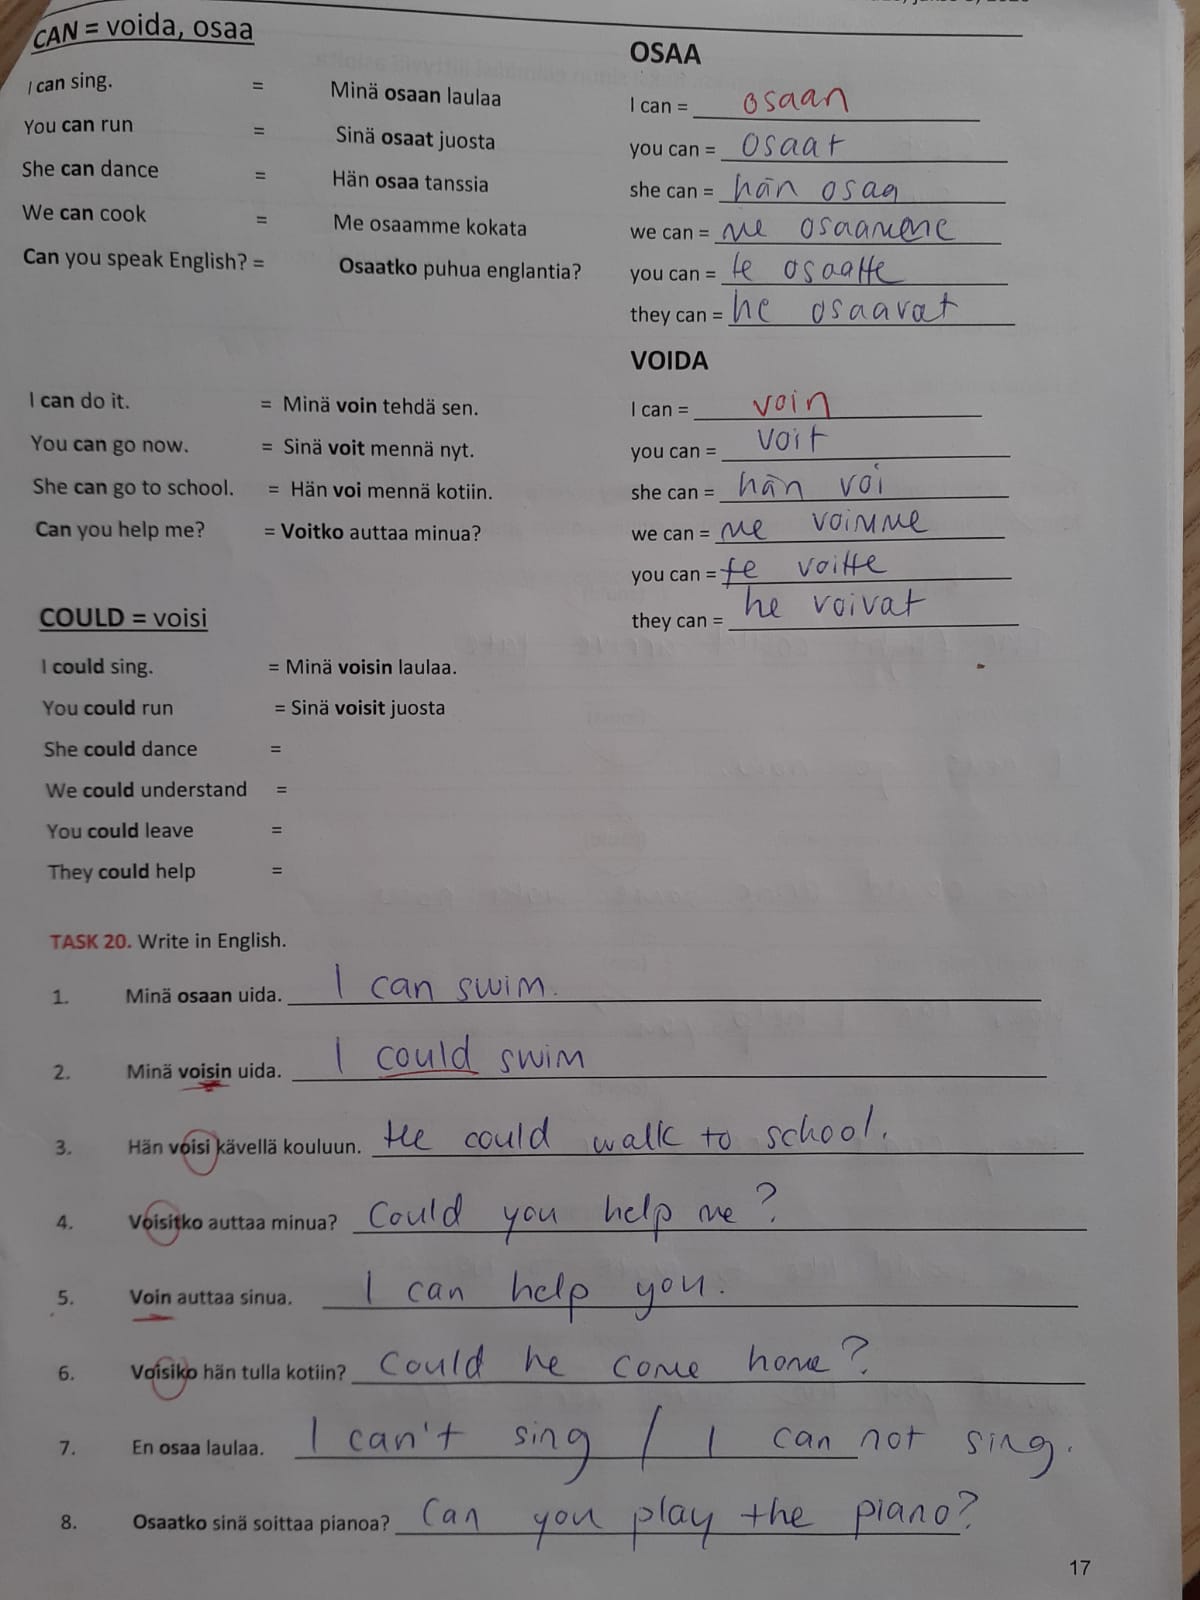 CAN = voida, osaa
I can sing. = Minä osaan laulaa
You can run = Sinä osaat juosta
She can dance = Hän osaa tanssia
We can cook = Me osaamme kokata
Can you speak English? = Osaatko puhua englantia?
OSAA
I can = osaan
you can = osaat
she can = hän osaa
we can = me osaamme
you can = te osaatte
they can = he osaavat
I can do it. = Minä voin tehdä sen.
You can go now. = Sinä voit mennä nyt.
She can go to school. = Hän voi mennä kotiin.
Can you help me? = Voitko auttaa minua?
VOIDA
I can = voin
you can = voit
she can = hän voi
we can = me voimme
you can = te voitte
they can = he voivat
COULD = voisi
I could sing. = Minä voisin laulaa.
You could run = Sinä voisit juosta
She could dance =
We could understand =
You could leave =
They could help =
TASK 20. Write in English.
1. Minä osaan uida. I can swim.
2. Minä voisin uida. I could swim
3. Hän voisi kävellä kouluun. He could walk to school.
4. Voisitko auttaa minua? Could you help me?
5. Voin auttaa sinua. I can help you.
6. Voisiko hän tulla kotiin? Could he come home?
7. En osaa laulaa. I can't sing / I can not sing.
8. Osaatko sinä soittaa pianoa? Can you play the piano?
17